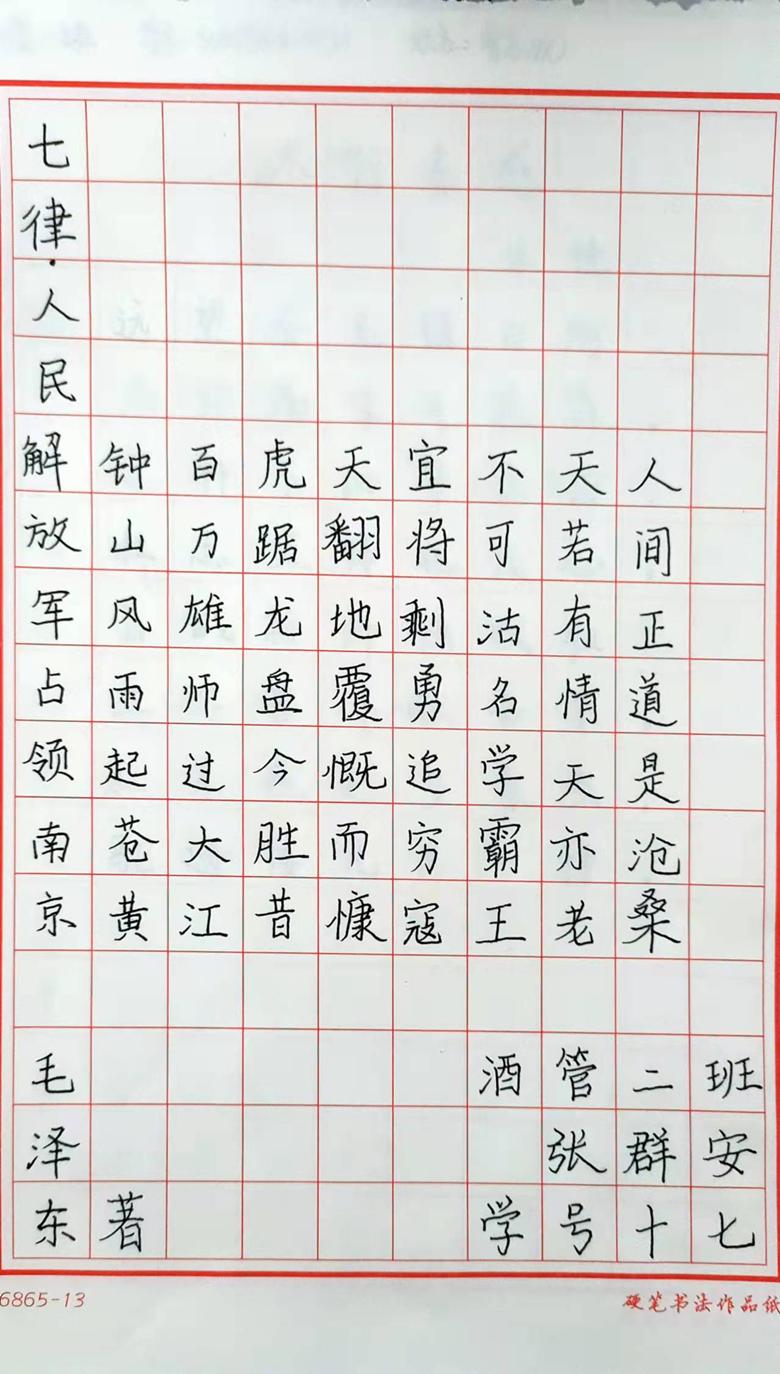 七律·人民解放军占领南京
钟山风雨起苍黄
百万雄师过大江
虎踞龙盘今胜昔
天翻地覆慨而慷
宜将剩勇追穷寇
不可沽名学霸王
天若有情天亦老
人间正道是沧桑
毛泽东著
酒管二班
张群安
学号十七
6865-13
硬笔书法作品纸